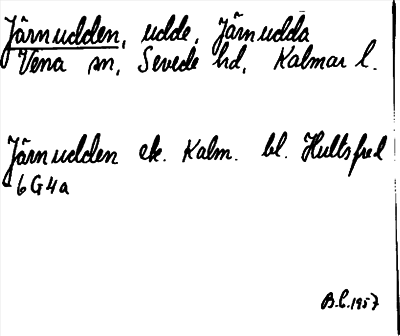 Järnudden, udde, Järnudda
Vena sn, Sevede hd, Kalmar l.
Järnudden ek. Kalm. bl. Hultsfred
6G4a
B.L. 1957